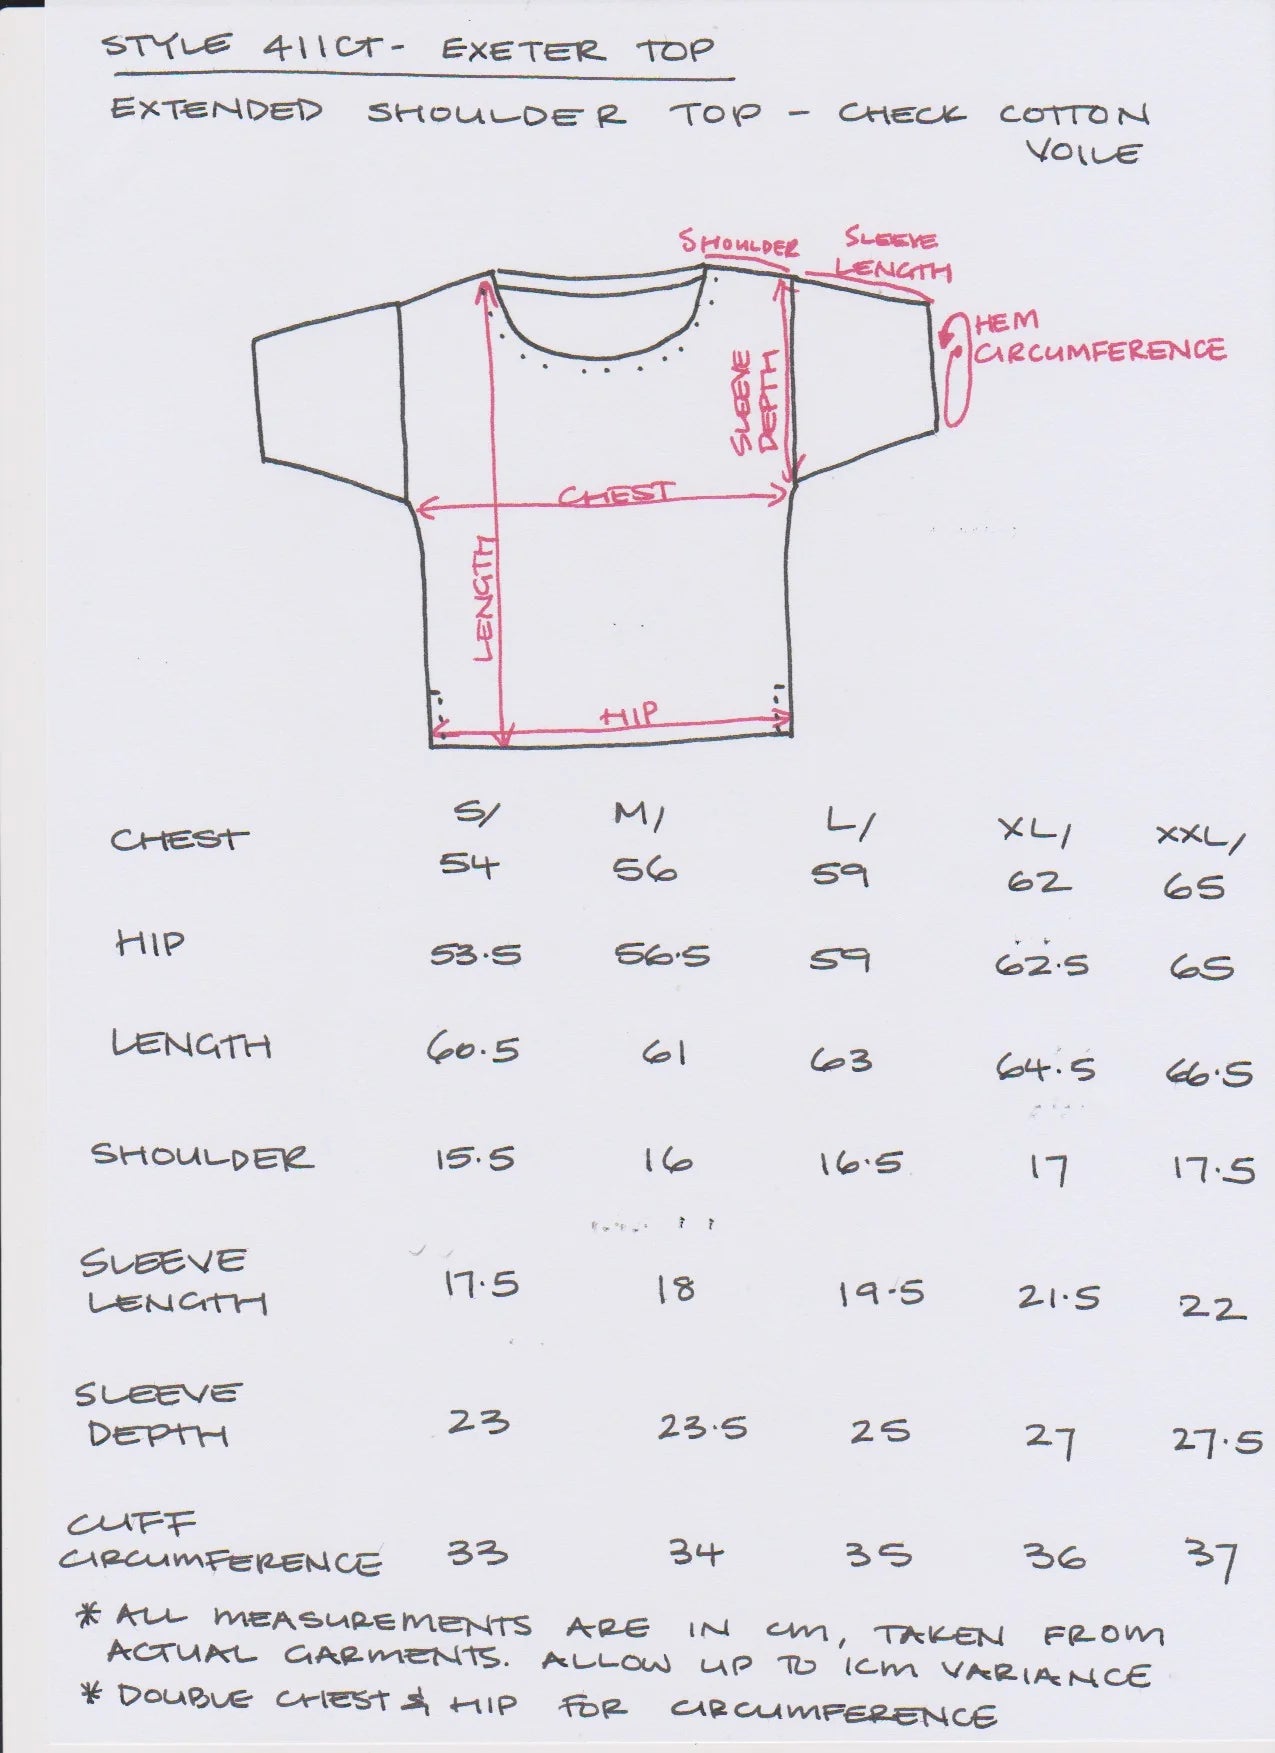 STYLE 411CT - EXETER TOP
EXTENDED SHOULDER TOP - CHECK COTTON
VOILE
SHOULDER
SLEEVE
LENGTH
HEM
CIRCUMFERENCE
SLEEVE
DEPTH
CHEST
LENGTH
HIP
S/ M/ L/ XL/ XXL/
CHEST 54 56 59 62 65
HIP 53.5 56.5 59 62.5 65
LENGTH 60.5 61 63 64.5 66.5
SHOULDER 15.5 16 16.5 17 17.5
SLEEVE
LENGTH 17.5 18 19.5 21.5 22
SLEEVE
DEPTH 23 23.5 25 27 27.5
CUFF
CIRCUMFERENCE 33 34 35 36 37
* ALL MEASUREMENTS ARE IN cm, TAKEN FROM
ACTUAL GARMENTS. ALLOW UP TO 1CM VARIANCE
* DOUBLE CHEST & HIP FOR CIRCUMFERENCE